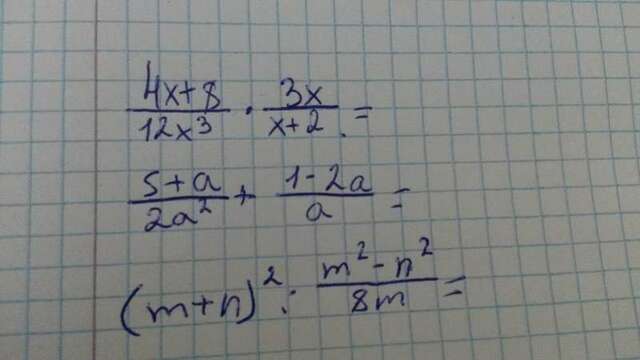 (4x+8)/(12x³) · (3x)/(x+2) =
(5+a)/(2a²) + (1-2a)/a =
(m+n)² : (m²-n²)/(8m) =